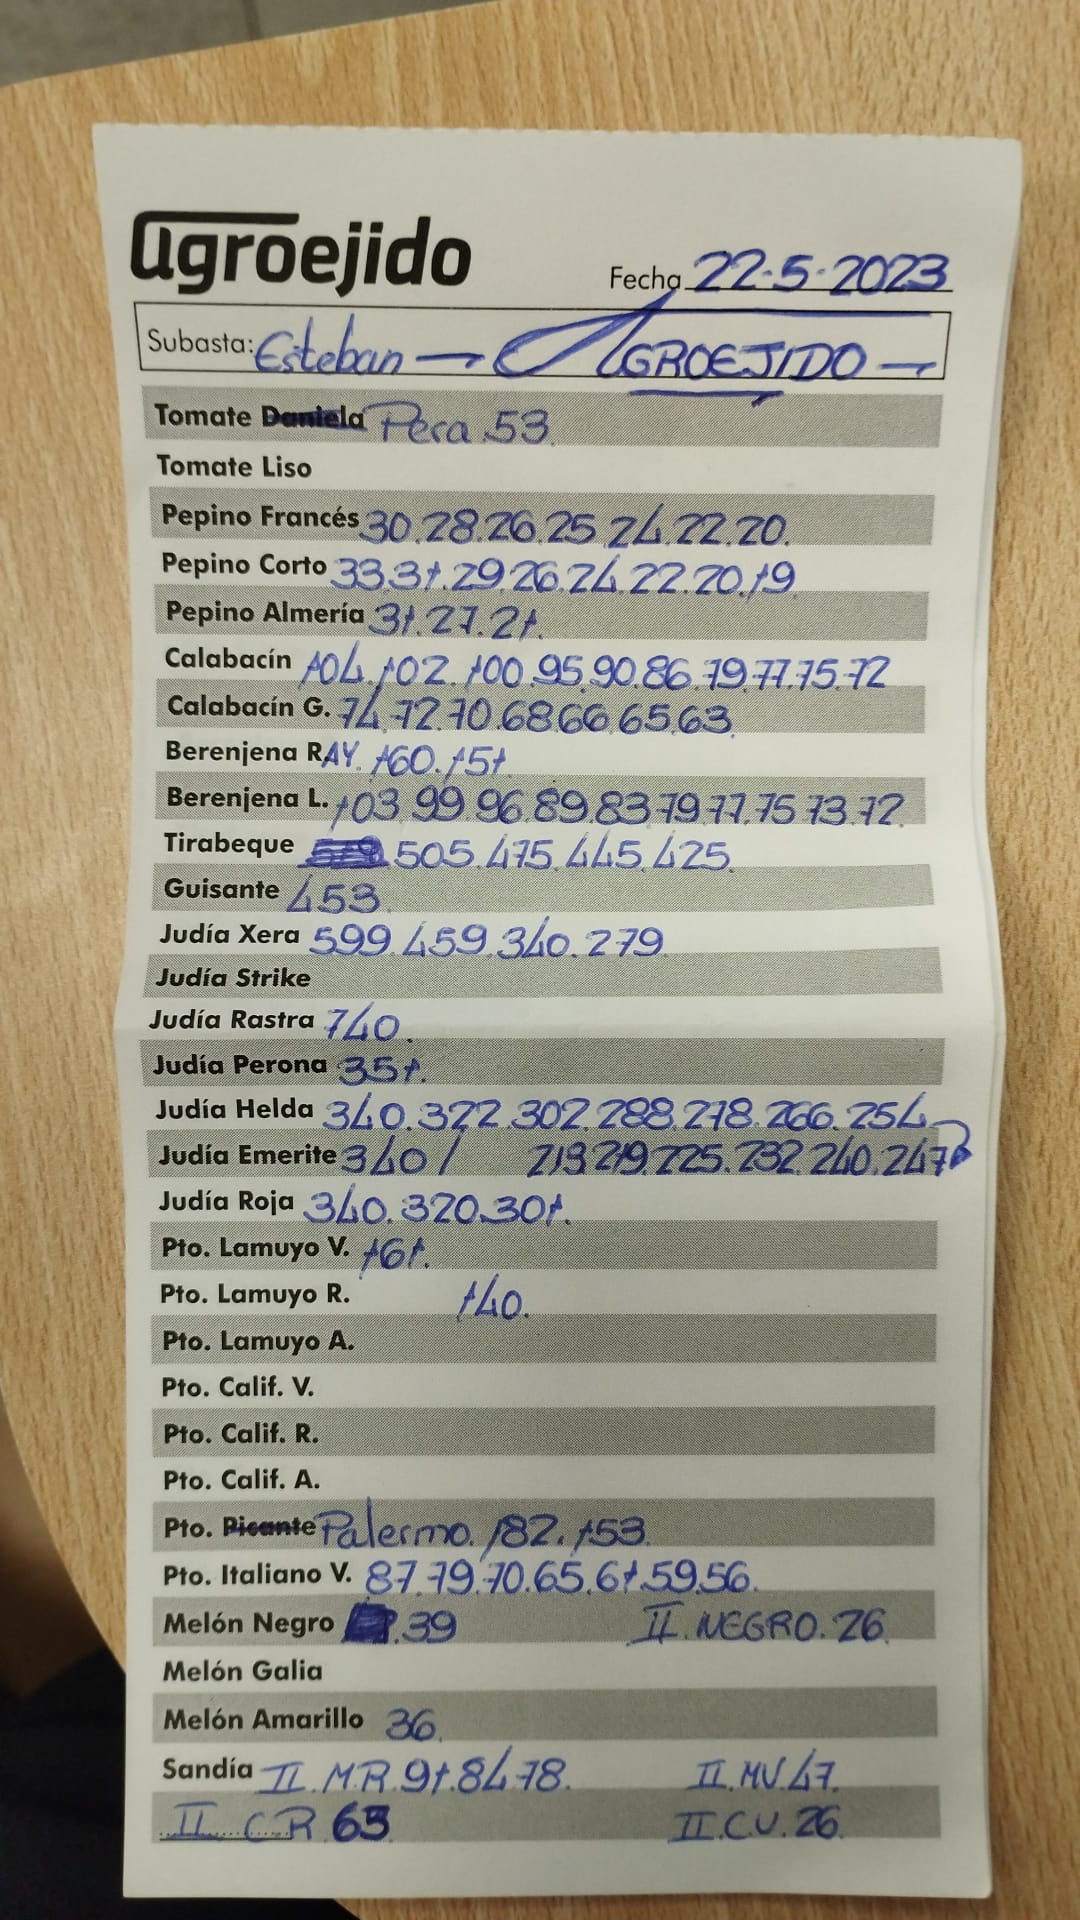 agroejido
Fecha 22-5-2023
Subasta: Esteban → AGROEJIDO –
Tomate Daniela Pera 53.
Tomate Liso
Pepino Francés 30.28.26.25.24.22.20.
Pepino Corto 33.31.29.26.24.22.20.19
Pepino Almería 31.27.21.
Calabacín 104.102.100.95.90.86.79.77.75.72
Calabacín G. 74.72.70.68.66.65.63.
Berenjena RAY. 160.151.
Berenjena L. 103.99.96.89.83.79.77.75.73.72.
Tirabeque 505.475.445.425.
Guisante 453.
Judía Xera 599.459.340.279.
Judía Strike
Judía Rastra 740.
Judía Perona 351.
Judía Helda 340.322.302.288.278.266.254
Judía Emerite 340 / 219.225.232.240.247
Judía Roja 340.320.301.
Pto. Lamuyo V. 161.
Pto. Lamuyo R. 140.
Pto. Lamuyo A.
Pto. Calif. V.
Pto. Calif. R.
Pto. Calif. A.
Pto. Picante Palermo. 182.153.
Pto. Italiano V. 87.79.70.65.61.59.56.
Melón Negro .39 II.NEGRO.26.
Melón Galia
Melón Amarillo 36.
Sandía II.M.R.91.84.78. II.MV.47.
II C.R 63 II.C.V.26.